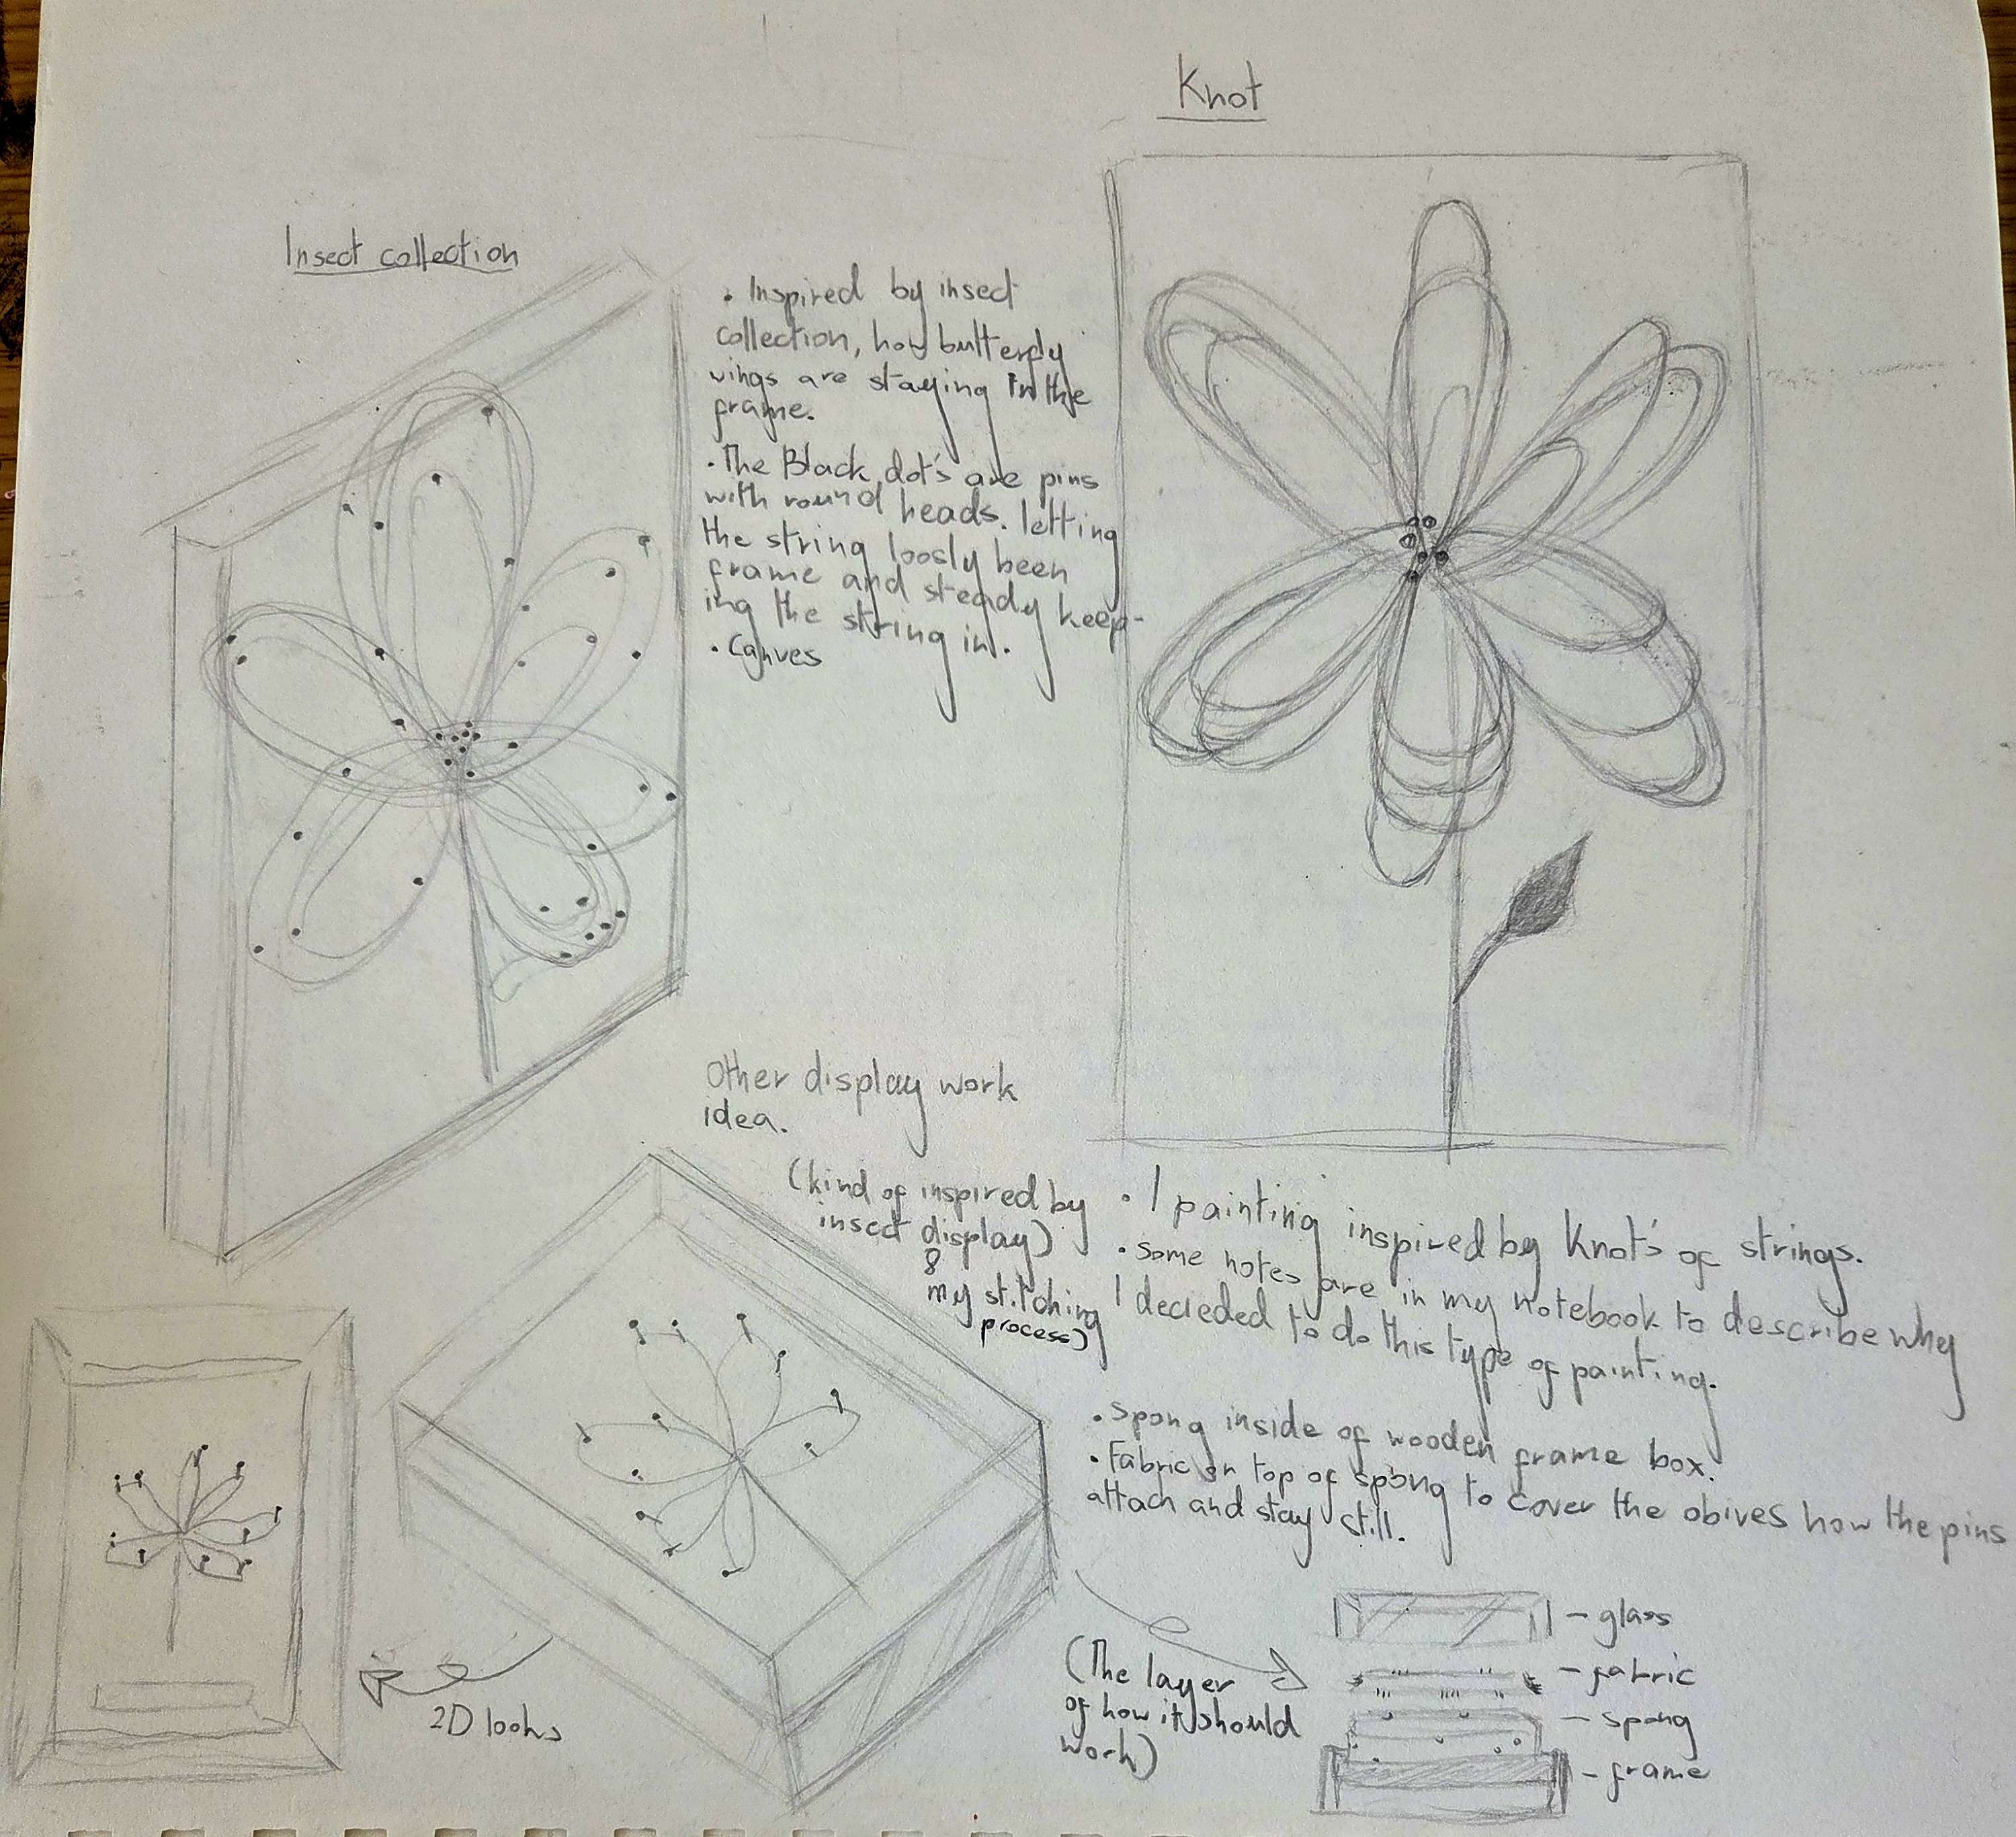 Knot
Insect collection
. Inspired by insect
collection, how butterfly
wings are staying in the
frame.
. The Black dot's are pins
with round heads. letting
the string loosly been
frame and steady keep-
ing the string in.
. Canves
Other display work
idea.
(kind of inspired by
insect display)
&
my stitching
process)
• I painting inspired by Knot's of strings.
• Some notes are in my notebook to describe why
I decieded to do this type of painting.
• Spong inside of wooden frame box.
• Fabric on top of spong to cover the obives how the pins
attach and stay still.
2D looks
(The layer
of how it should
work)
- glass
- fabric
- spong
- frame